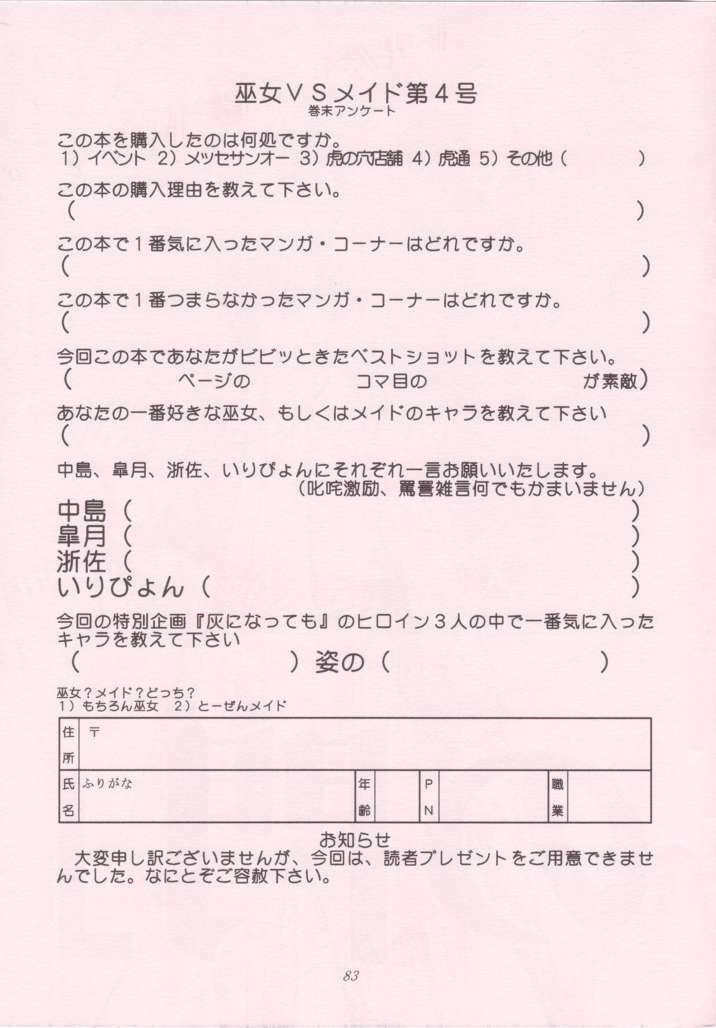 巫女VSメイド第4号
巻末アンケート
この本を購入したのは何処ですか。
1）イベント 2）メッセサンオー 3）虎の穴店舗 4）虎通 5）その他（　　　　）
この本の購入理由を教えて下さい。
（　　　　　　　　　　　　　　　　）
この本で1番気に入ったマンガ・コーナーはどれですか。
（　　　　　　　　　　　　　　　　）
この本で1番つまらなかったマンガ・コーナーはどれですか。
（　　　　　　　　　　　　　　　　）
今回この本であなたがビビッときたベストショットを教えて下さい。
（　　　　ページの　　　　コマ目の　　　　　　が素敵）
あなたの一番好きな巫女、もしくはメイドのキャラを教えて下さい
（　　　　　　　　　　　　　　　　）
中島、皐月、浙佐、いりぴょんにそれぞれ一言お願いいたします。
（叱咤激励、罵詈雑言何でもかまいません）
中島（　　　　　　　　　　　　　　）
皐月（　　　　　　　　　　　　　　）
浙佐（　　　　　　　　　　　　　　）
いりぴょん（　　　　　　　　　　　）
今回の特別企画『灰になっても』のヒロイン3人の中で一番気に入った
キャラを教えて下さい
（　　　　　　　　）姿の（　　　　　　　　）
巫女？メイド？どっち？
1）もちろん巫女　2）とーぜんメイド
住所 〒
氏名 ふりがな 年齢 PN 職業
お知らせ
大変申し訳ございませんが、今回は、読者プレゼントをご用意できませ
んでした。なにとぞご容赦下さい。
83